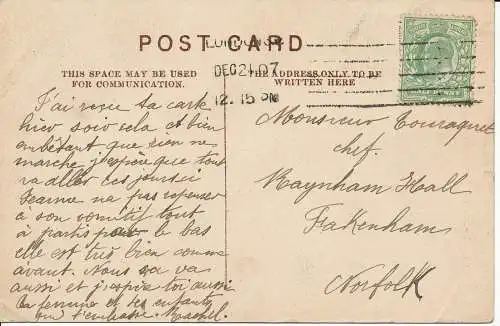 POST CARD
LONDON
DEC 21 07
12.15 PM
THIS SPACE MAY BE USED
FOR COMMUNICATION.
THE ADDRESS ONLY TO BE
WRITTEN HERE
HALF PENNY
J'ai reçu ta carte
hier soir cela et bien
embêtant que rien ne
marche j'espère que tout
va aller ces jours ci
Jeanne na pas repenser
à son vomitif tout
à partis par le bas
elle est très bien comme
avant. Nous sa va
aussi et j'espère toi aussi
ta femme et tes enfants
qui t'embrasse.
Monsieur Touraquet
chef.
Raynham Hall
Fakenham
Norfolk